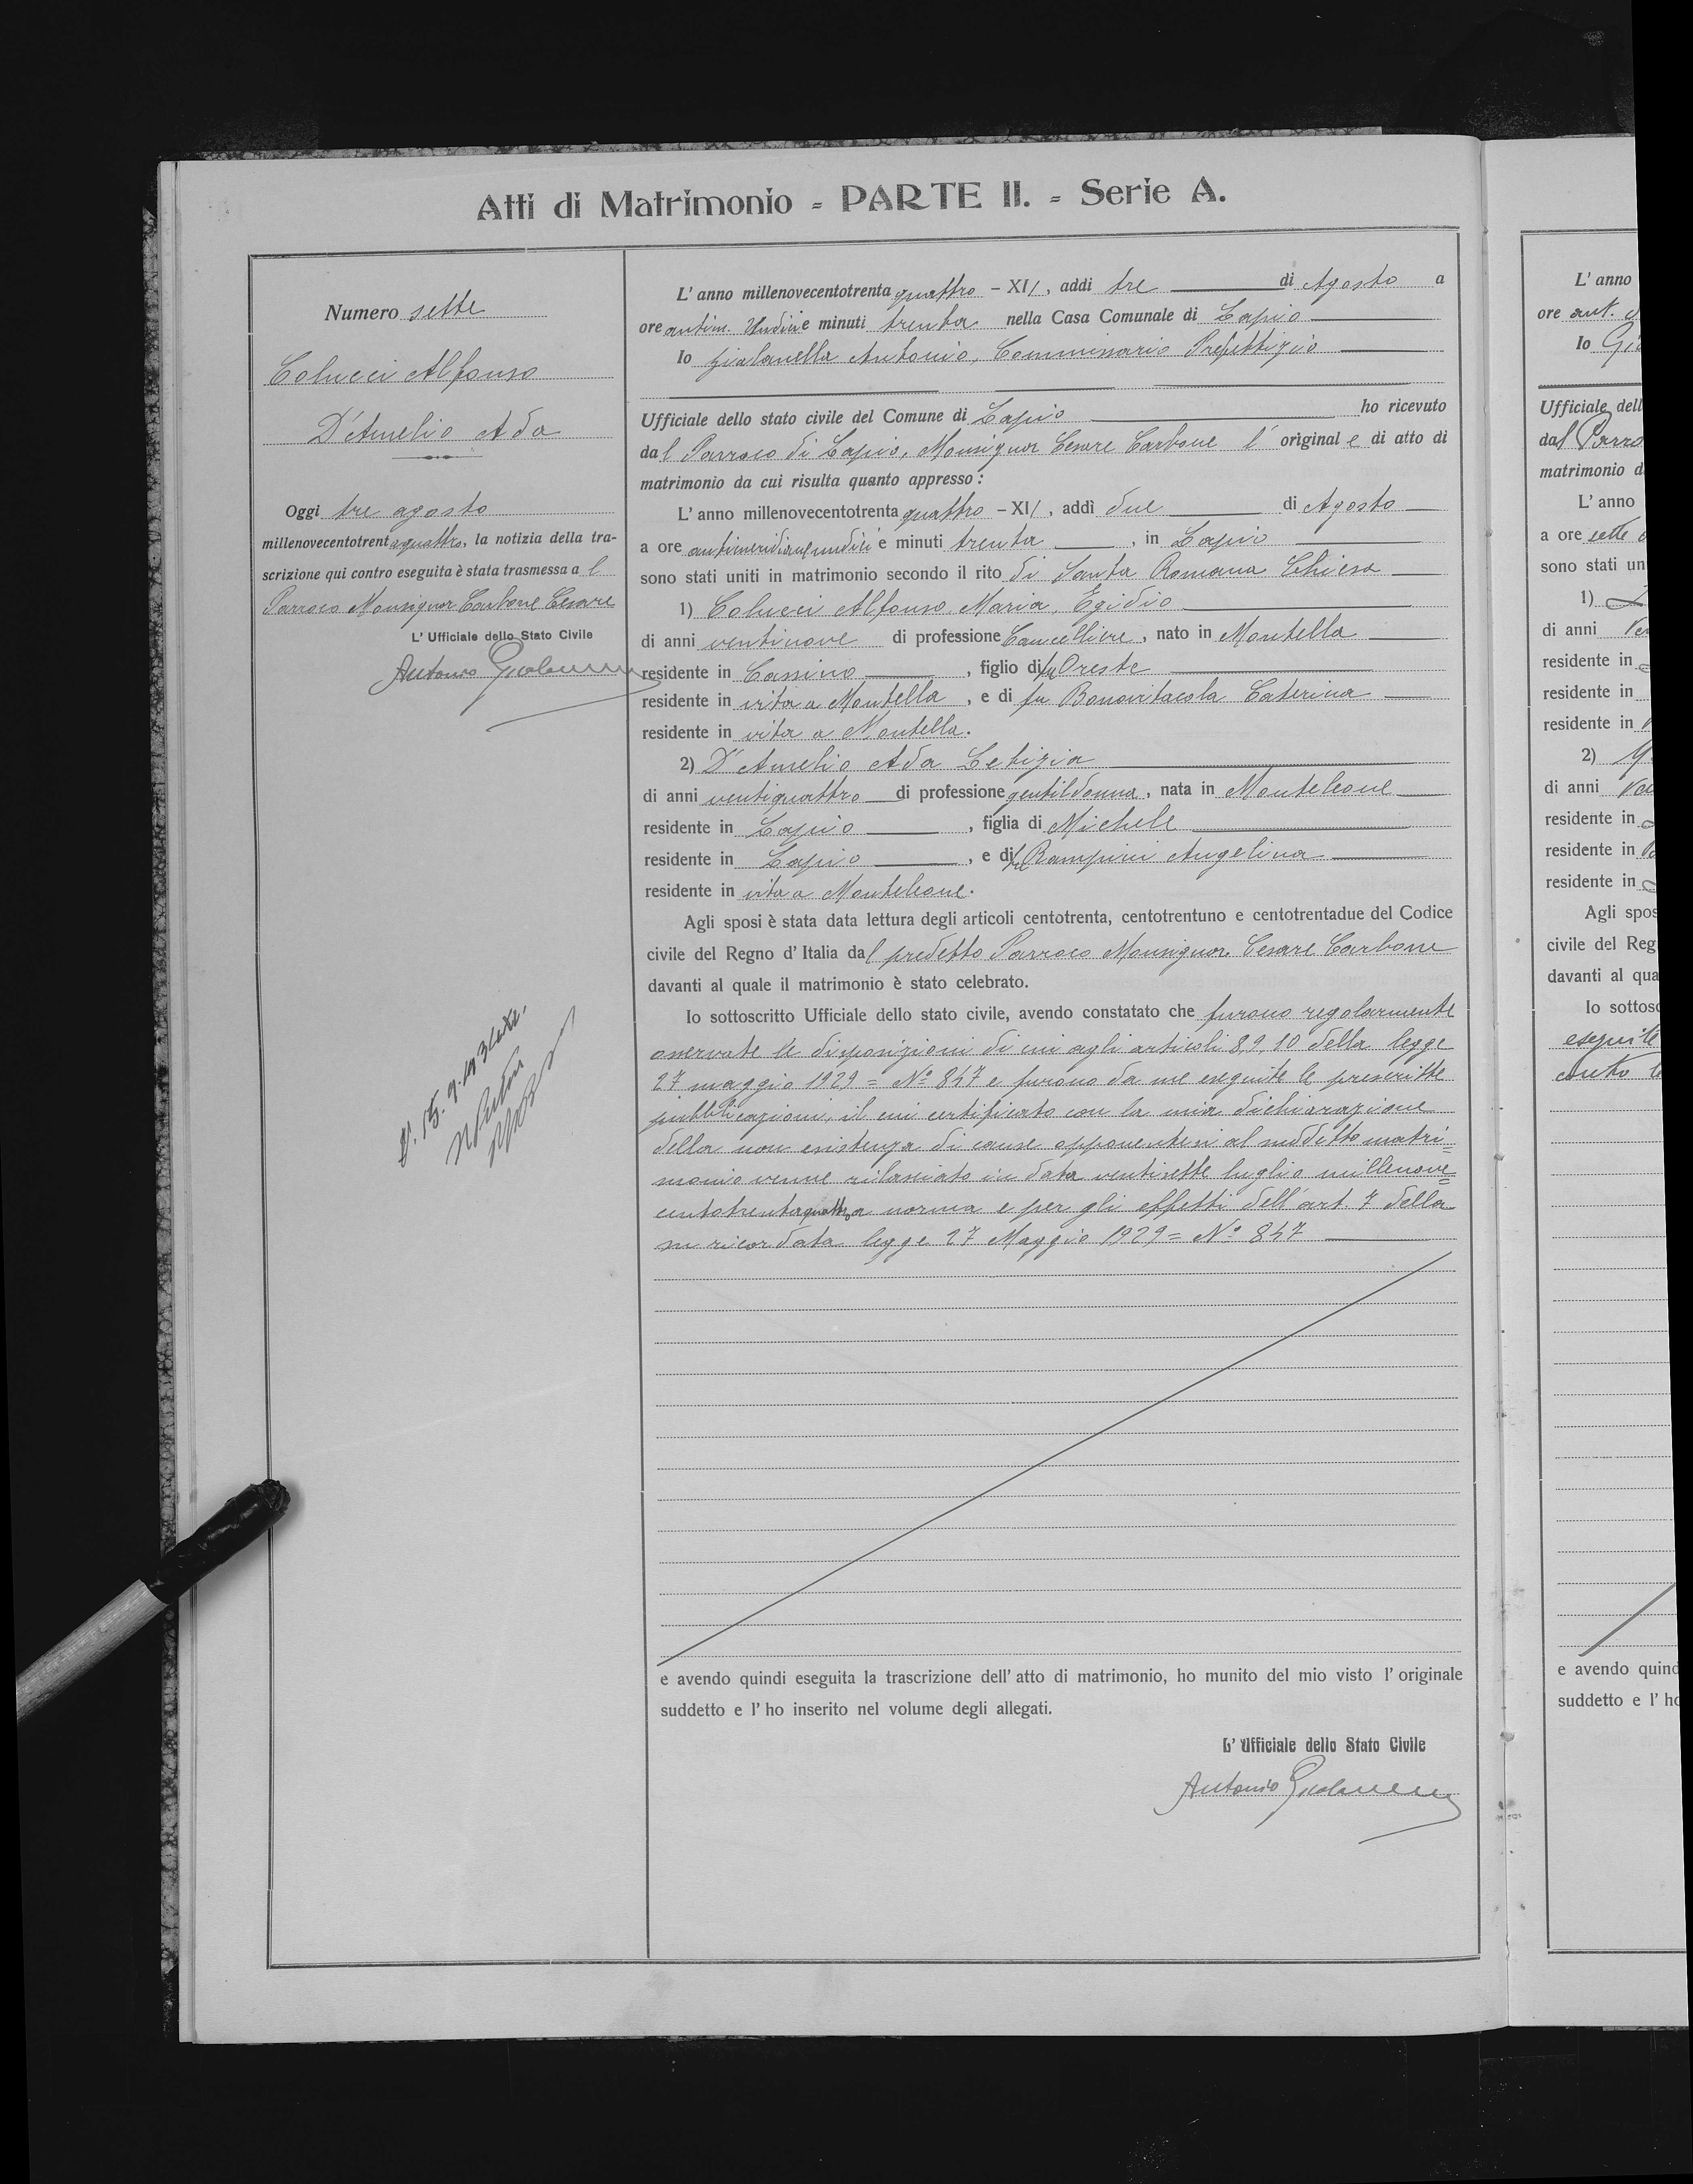 Atti di Matrimonio - PARTE II. - Serie A.
Numero sette
Colucci Alfonso
D'Amelio Ada
Oggi tre agosto
millenovecentotrentaquattro, la notizia della tra-
scrizione qui contro eseguita è stata trasmessa al
Parroco Monsignor Carbone Cesare
L' Ufficiale dello Stato Civile
Antonio
L' anno millenovecentotrentaquattro - XII, addì tre di Agosto a
ore antim. Undici e minuti trenta nella Casa Comunale di Lapio
Io Gialanella Antonio, Commissario Prefettizio
Ufficiale dello stato civile del Comune di Lapio ho ricevuto
dal Parroco di Lapio, Monsignor Cesare Carbone l' originale di atto di
matrimonio da cui risulta quanto appresso :
L' anno millenovecentotrentaquattro - XII, addì due di Agosto
a ore antimeridiane undici e minuti trenta, in Lapio
sono stati uniti in matrimonio secondo il rito di Santa Romana Chiesa
1) Colucci Alfonso Maria, Egidio
di anni ventinove di professione Cancelliere, nato in Montella
residente in Cassino, figlio di fu Oreste
residente in vita a Montella, e di fu Bonavitacola Caterina
residente in vita a Montella.
2) D'Amelio Ada Letizia
di anni ventiquattro di professione gentildonna, nata in Monteleone
residente in Lapio, figlia di Michele
residente in Lapio, e di fu Rampini Angelina
residente in vita a Monteleone.
Agli sposi è stata data lettura degli articoli centotrenta, centotrentuno e centotrentadue del Codice
civile del Regno d' Italia dal predetto Parroco Monsignor Cesare Carbone
davanti al quale il matrimonio è stato celebrato.
Io sottoscritto Ufficiale dello stato civile, avendo constatato che furono regolarmente
osservate le disposizioni di cui agli articoli 8, 9, 10 della legge
27 maggio 1929 = Nº 847 e furono da me eseguite le prescritte
pubblicazioni, il cui certificato con la mia dichiarazione
della non esistenza di cause opponentisi al suddetto matri=
monio venne rilasciato in data ventisette luglio millenove=
centotrentaquattro a norma e per gli effetti dell'art. 7 della
su ricordata legge 27 Maggio 1929 = Nº 847
e avendo quindi eseguita la trascrizione dell' atto di matrimonio, ho munito del mio visto l' originale
suddetto e l' ho inserito nel volume degli allegati.
L' Ufficiale dello Stato Civile
Antonio
L' anno
ore ant.
Io
Ufficiale dell
dal Parro
matrimonio d
L' anno
a ore sette
sono stati un
1)
di anni
residente in
residente in
residente in
2)
di anni
residente in
residente in
residente in
Agli spos
civile del Reg
davanti al qua
Io sottosc
eseguite
e avendo quind
suddetto e l' ho